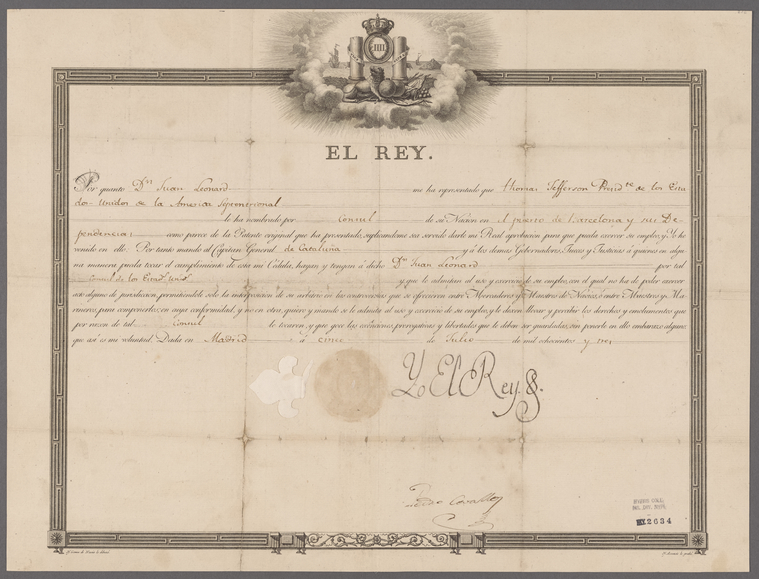 IIII
EL REY.
Por quanto Dn. Juan Leonard me ha representado que Thomas Jefferson Presidte. de los Esta
dos Unidos de la America Septentrional
le ha nombrado por Consul de su Nacion en el puerto de Barcelona y sus De
pendencias, como parece de la Patente original que ha presentado, suplicandome sea servido darle mi Real aprobacion para que pueda exercer su empleo; y Yo he
venido en ello. Por tanto mando al Capitan General de Cataluña y á los demas Gobernadores, Jueces y Justicias á quienes en algu-
na manera pueda tocar el cumplimiento de esta mi Cédula, hagan y tengan á dicho Dn. Juan Leonard por tal
Consul de los Estads. Unids. y que le admitan al uso y exercicio de su empleo, con el qual no ha de poder exercer
acto alguno de jurisdiccion, permitiendole solo la interposicion de su arbitrio en las controversias que se ofrecieren entre Mercaderes y Maestros de Navios, ó entre Maestros y Ma-
rineros, para componerlos; en cuya conformidad, y no en otra, quiero y mando se le admita al uso y exercicio de su empleo, y le dexen llevar y percibir los derechos y emolumentos que
por razon de tal Consul le tocaren, y que goce las exênciones, prerogativas y libertades que le deben ser guardadas, sin ponerle en ello embarazo alguno,
que así es mi voluntad. Dada en Madrid á cinco de Julio de mil ochocientos y tres
Yo El Rey.
Pedro Cevallos
EX2634